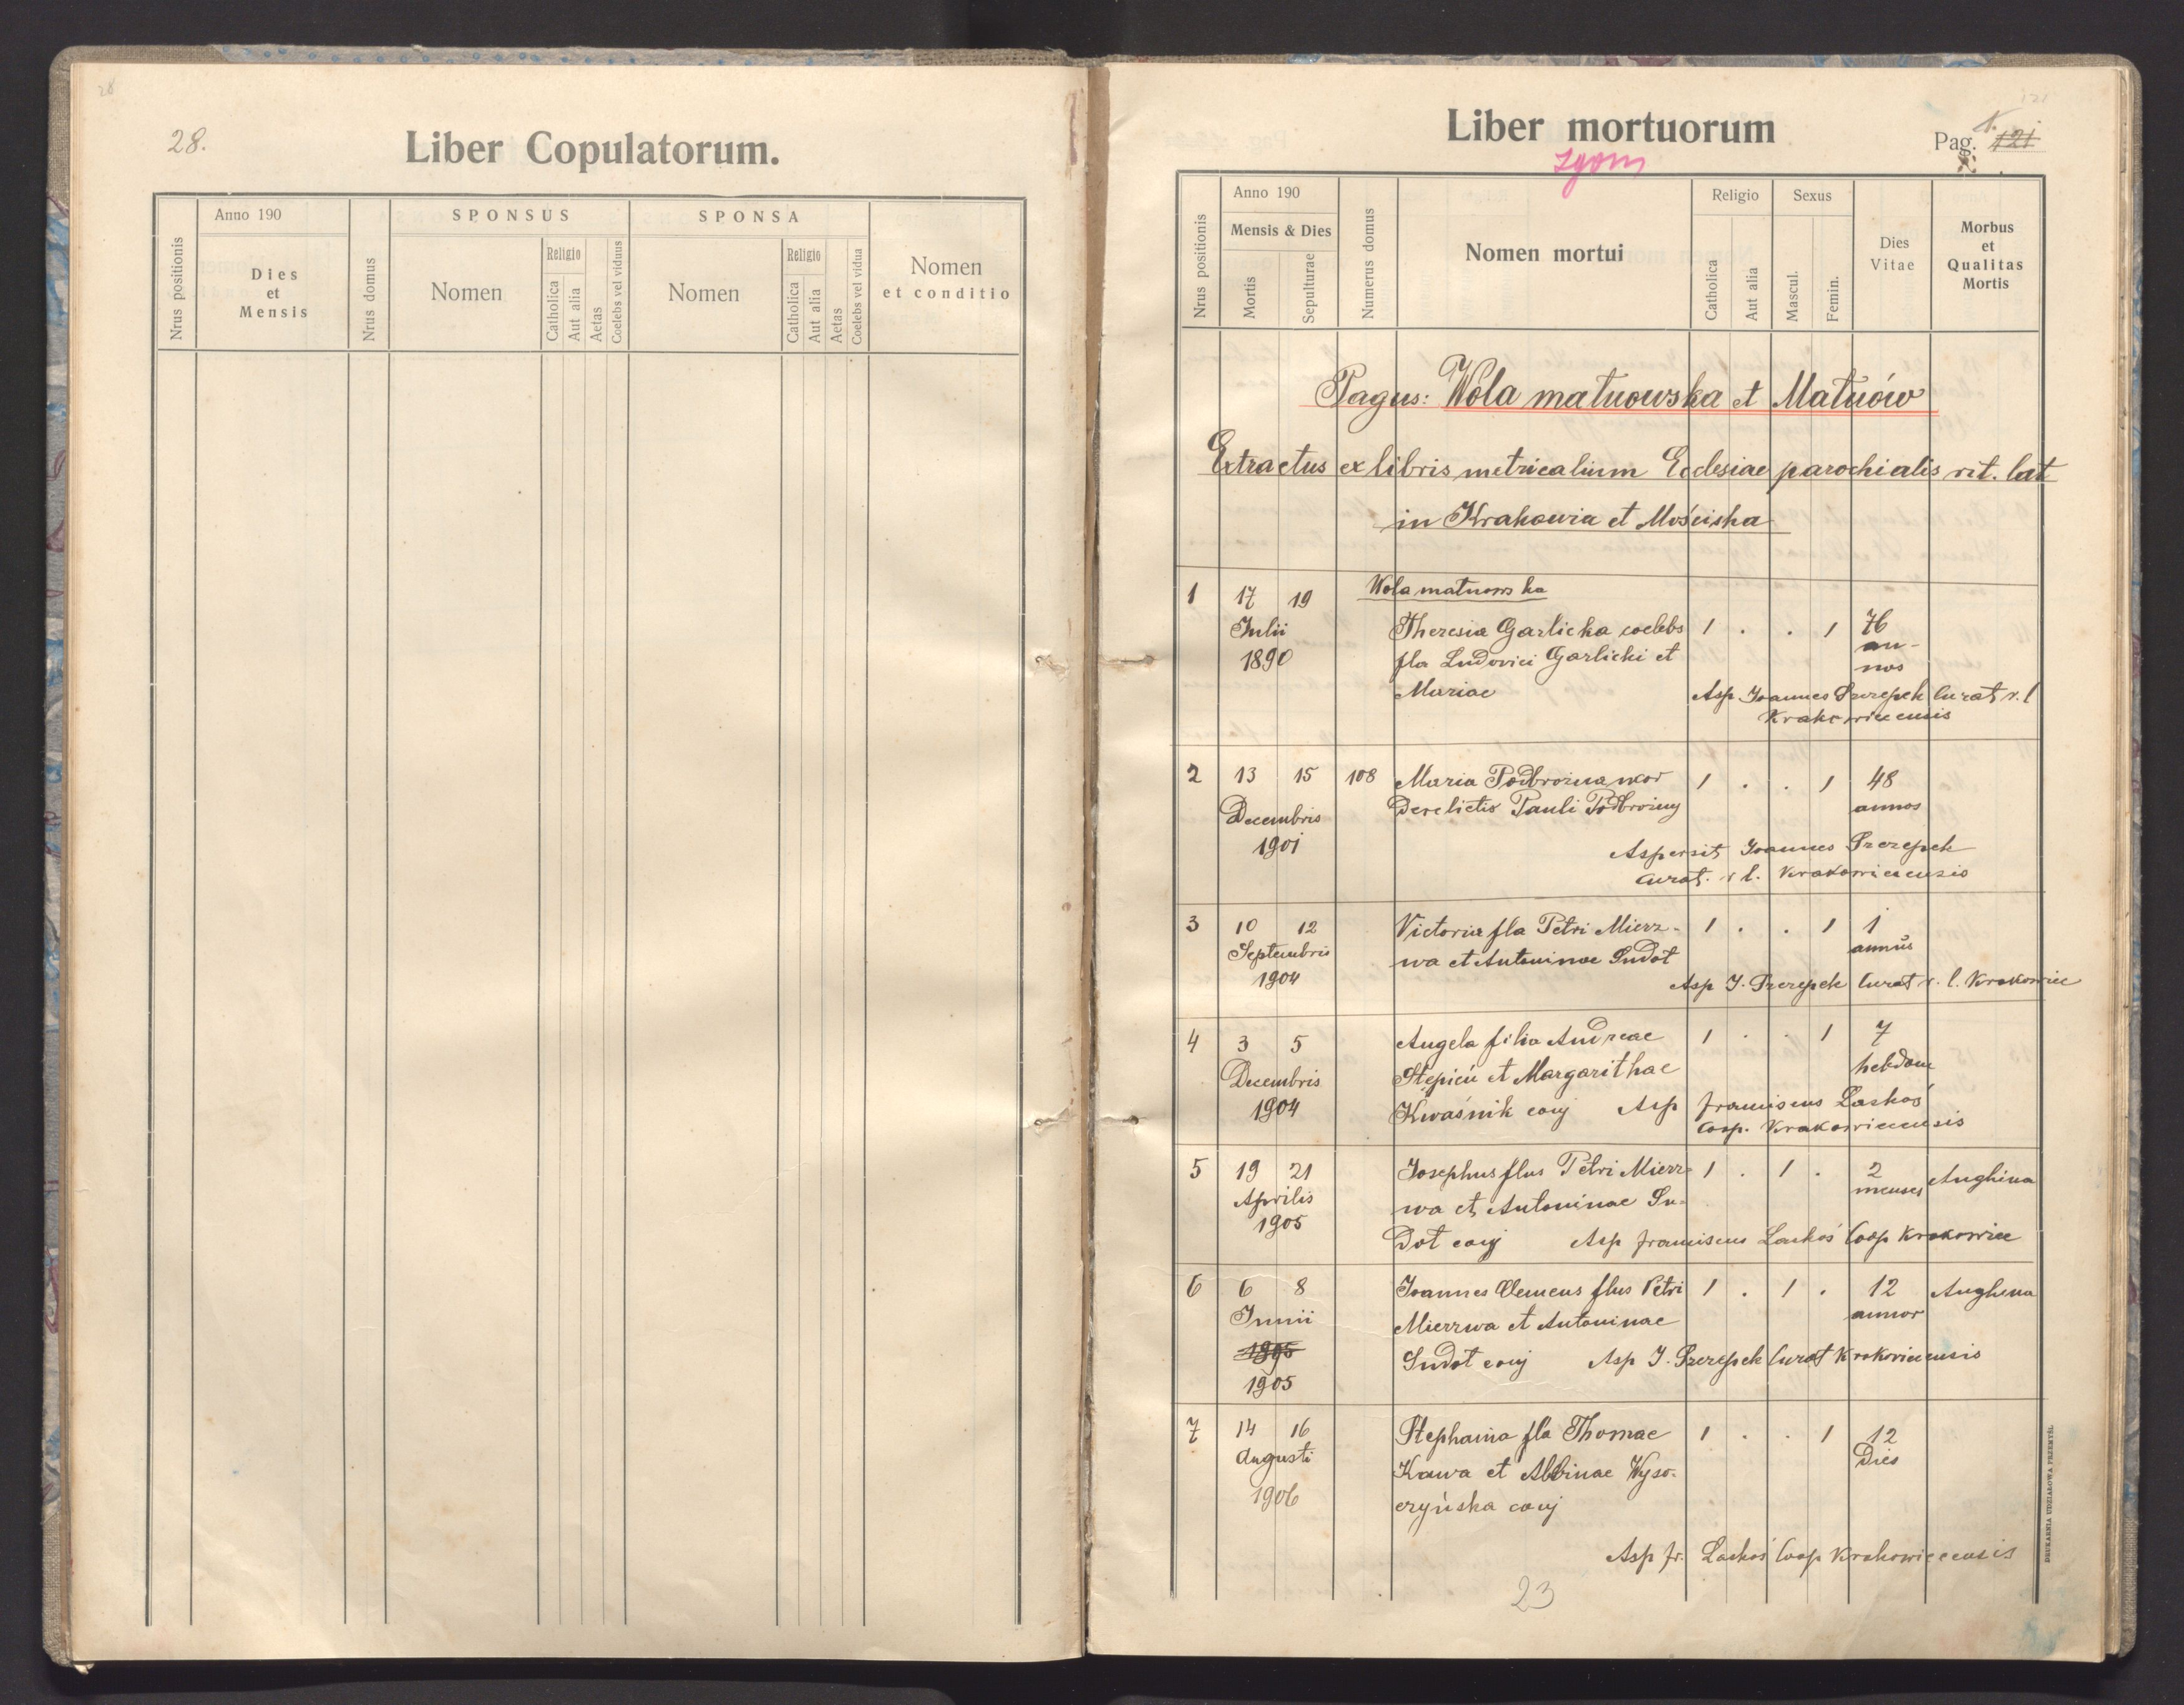 28.
Liber Copulatorum.
Nrus positionis
Anno 190
Dies
et
Mensis
Nrus domus
SPONSUS
Nomen
Religio
Catholica
Aut alia
Aetas
Coelebs vel viduus
SPONSA
Nomen
Religio
Catholica
Aut alia
Aetas
Coelebs vel vidua
Nomen
et conditio
Liber mortuorum
zgony
Pag. 121
Nrus positionis
Anno 190
Mensis & Dies
Mortis
Sepulturae
Numerus domus
Nomen mortui
Religio
Catholica
Aut alia
Sexus
Mascul.
Femin.
Dies
Vitae
Morbus
et
Qualitas
Mortis
Pagus: Wola matnowska et Matnów
Extractus ex libris metricalium Ecclesiae parochialis rit. lat
in Krakowia et Mościska
Wola matnowska
1 17 19 Theresia Garlicka coelebs 1 . . 1 76
Julii fla Ludovici Garlicki et an-
1890 Mariae nos
Asp. Joannes Szczepek Curat r. l
Krakowiecensis
2 13 15 108 Maria Podbrożna uxor 1 . . 1 48
Decembris Derelictis Pauli Podbrożny annos
1901
Aspersit Joannes Szczepek
Curat. r l. Krakowiecensis
3 10 12 Victoria fla Petri Mierz- 1 . . 1 1
Septembris wa et Antoninae Dudot annus
1904 Asp J. Szczepek Curat r. l. Krakowiec
4 3 5 Angela filia Andreae 1 . . 1 7
Decembris Stępień et Margarithae hebdom
1904 Kwaśnik conj Asp Franciscus Laskoś
Coop. Krakowiecensis
5 19 21 Josephus flus Petri Mierz- 1 . 1 . 2 Anghina
Aprilis wa et Antoninae Du- menses
1905 dot conj Asp Franciscus Laskoś Coop Krakowiec
6 6 8 Joannes Clemens flus Petri 1 . 1 . 12 Anghena
Junii Mierzwa et Antoninae annor
1905 Dudot conj Asp J. Szczepek Curat Krakowiecensis
1905
7 14 16 Stephania fla Thomae 1 . . 1 12
Augusti Kawa et Albinae Wyso- Dies
1906 czyńska conj
Asp Fr. Laskoś Coop Krakowiecensis
23
DRUKARNIA UDZIAŁOWA PRZEMYŚL